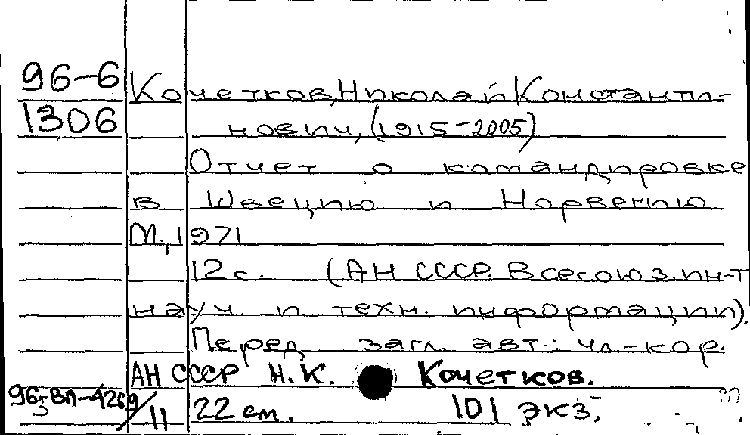 96-6
1306
Кочетков, Николай Константи-
нович, (1915-2005)
Отчет о командировке
в Швецию и Норвегию
М., 1971
12 с. (АН СССР. Всесоюз. ин-т
науч. и техн. информации).
Перед загл. авт.: чл.-кор.
АН СССР Н.К. Кочетков.
22 см. 101 экз.